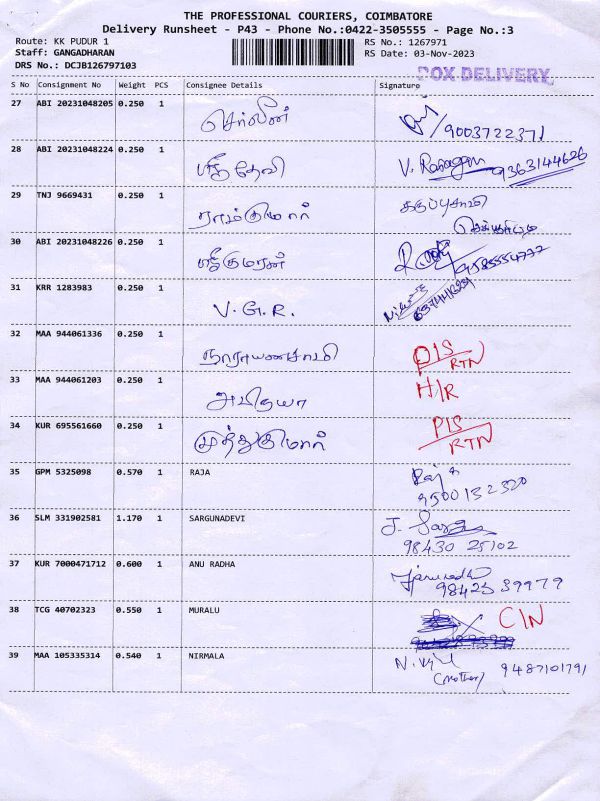 THE PROFESSIONAL COURIERS, COIMBATORE
Delivery Runsheet - P43 - Phone No.:0422-3505555 - Page No.:3
Route: KK PUDUR 1 RS No.: 1267971
Staff: GANGADHARAN RS Date: 03-Nov-2023
DRS No.: DCJB126797103
POX DELIVERY
S No Consignment No Weight PCS Consignee Details Signature
27 ABI 20231048205 0.250 1 செர்லின் /9003722371
28 ABI 20231048224 0.250 1 ஸ்ரீதேவி V. 9363144626
29 TNJ 9669431 0.250 1 ராம்குமார் கருப்புசாமி
30 ABI 20231048226 0.250 1 ஸ்ரீகுமரன் 9585554777
31 KRR 1283983 0.250 1 V.G.R.
32 MAA 944061336 0.250 1 நாராயணசாமி DIS
RTN
33 MAA 944061203 0.250 1 H/R
34 KUR 695561660 0.250 1 முத்துகுமார் DIS
RTN
35 GPM 5325098 0.570 1 RAJA Raja
9500132320
36 SLM 331902581 1.170 1 SARGUNADEVI J.
98430 25102
37 KUR 7000471712 0.600 1 ANU RADHA
98425 39979
38 TCG 40702323 0.550 1 MURALU C/N
39 MAA 105335314 0.540 1 NIRMALA N. 9487101791
(mother)